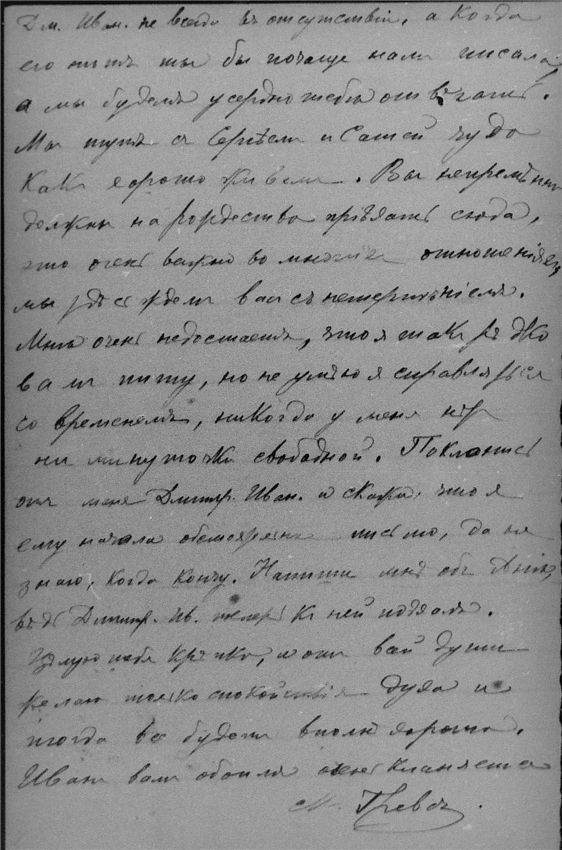 Дм. Иван. не всегда въ отсутствіи, а когда
его нѣтъ ты бы почаще намъ писала,
а мы будемъ усердно тебѣ отвѣчать.
Мы тутъ съ Сергѣемъ и Сашей чудо
какъ хорошо живемъ. Вы непремѣнно
должны на рождество пріѣхать сюда,
это очень важно во многихъ отношеніяхъ,
мы здѣсь ждемъ васъ съ нетерпѣніемъ.
Мнѣ очень недостаетъ, что я такъ рѣдко
вамъ пишу, но не умѣю я справляться
со временемъ, никогда у меня нѣтъ
ни минуточки свободной. Поклонись
отъ меня Дмитр. Иван. и скажи, что я
ему начала письмо, да не
знаю, когда кончу. Напиши мнѣ объ Анѣ,
вѣдь Дмитр. Ив. теперь къ ней поѣхалъ.
Цѣлую тебя крѣпко, и отъ всей души
желаю только спокойствія духа и
тогда все будетъ вполнѣ хорошо.
Иванъ вамъ обоимъ очень кланяется
М. Гревсъ.